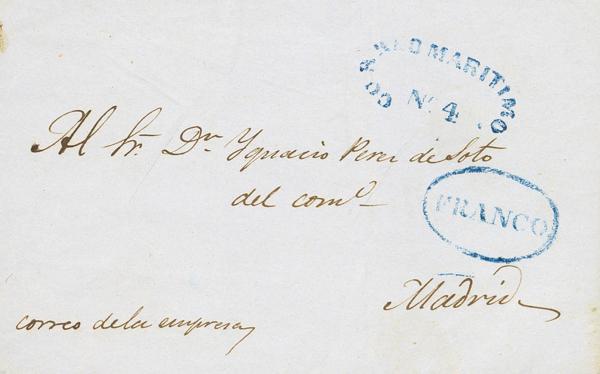 CORREO MARITIMO
Nº 4
Al Sr. Dn Ygnacio Perez de Soto
del comº
FRANCO
Madrid
correo de la empresa